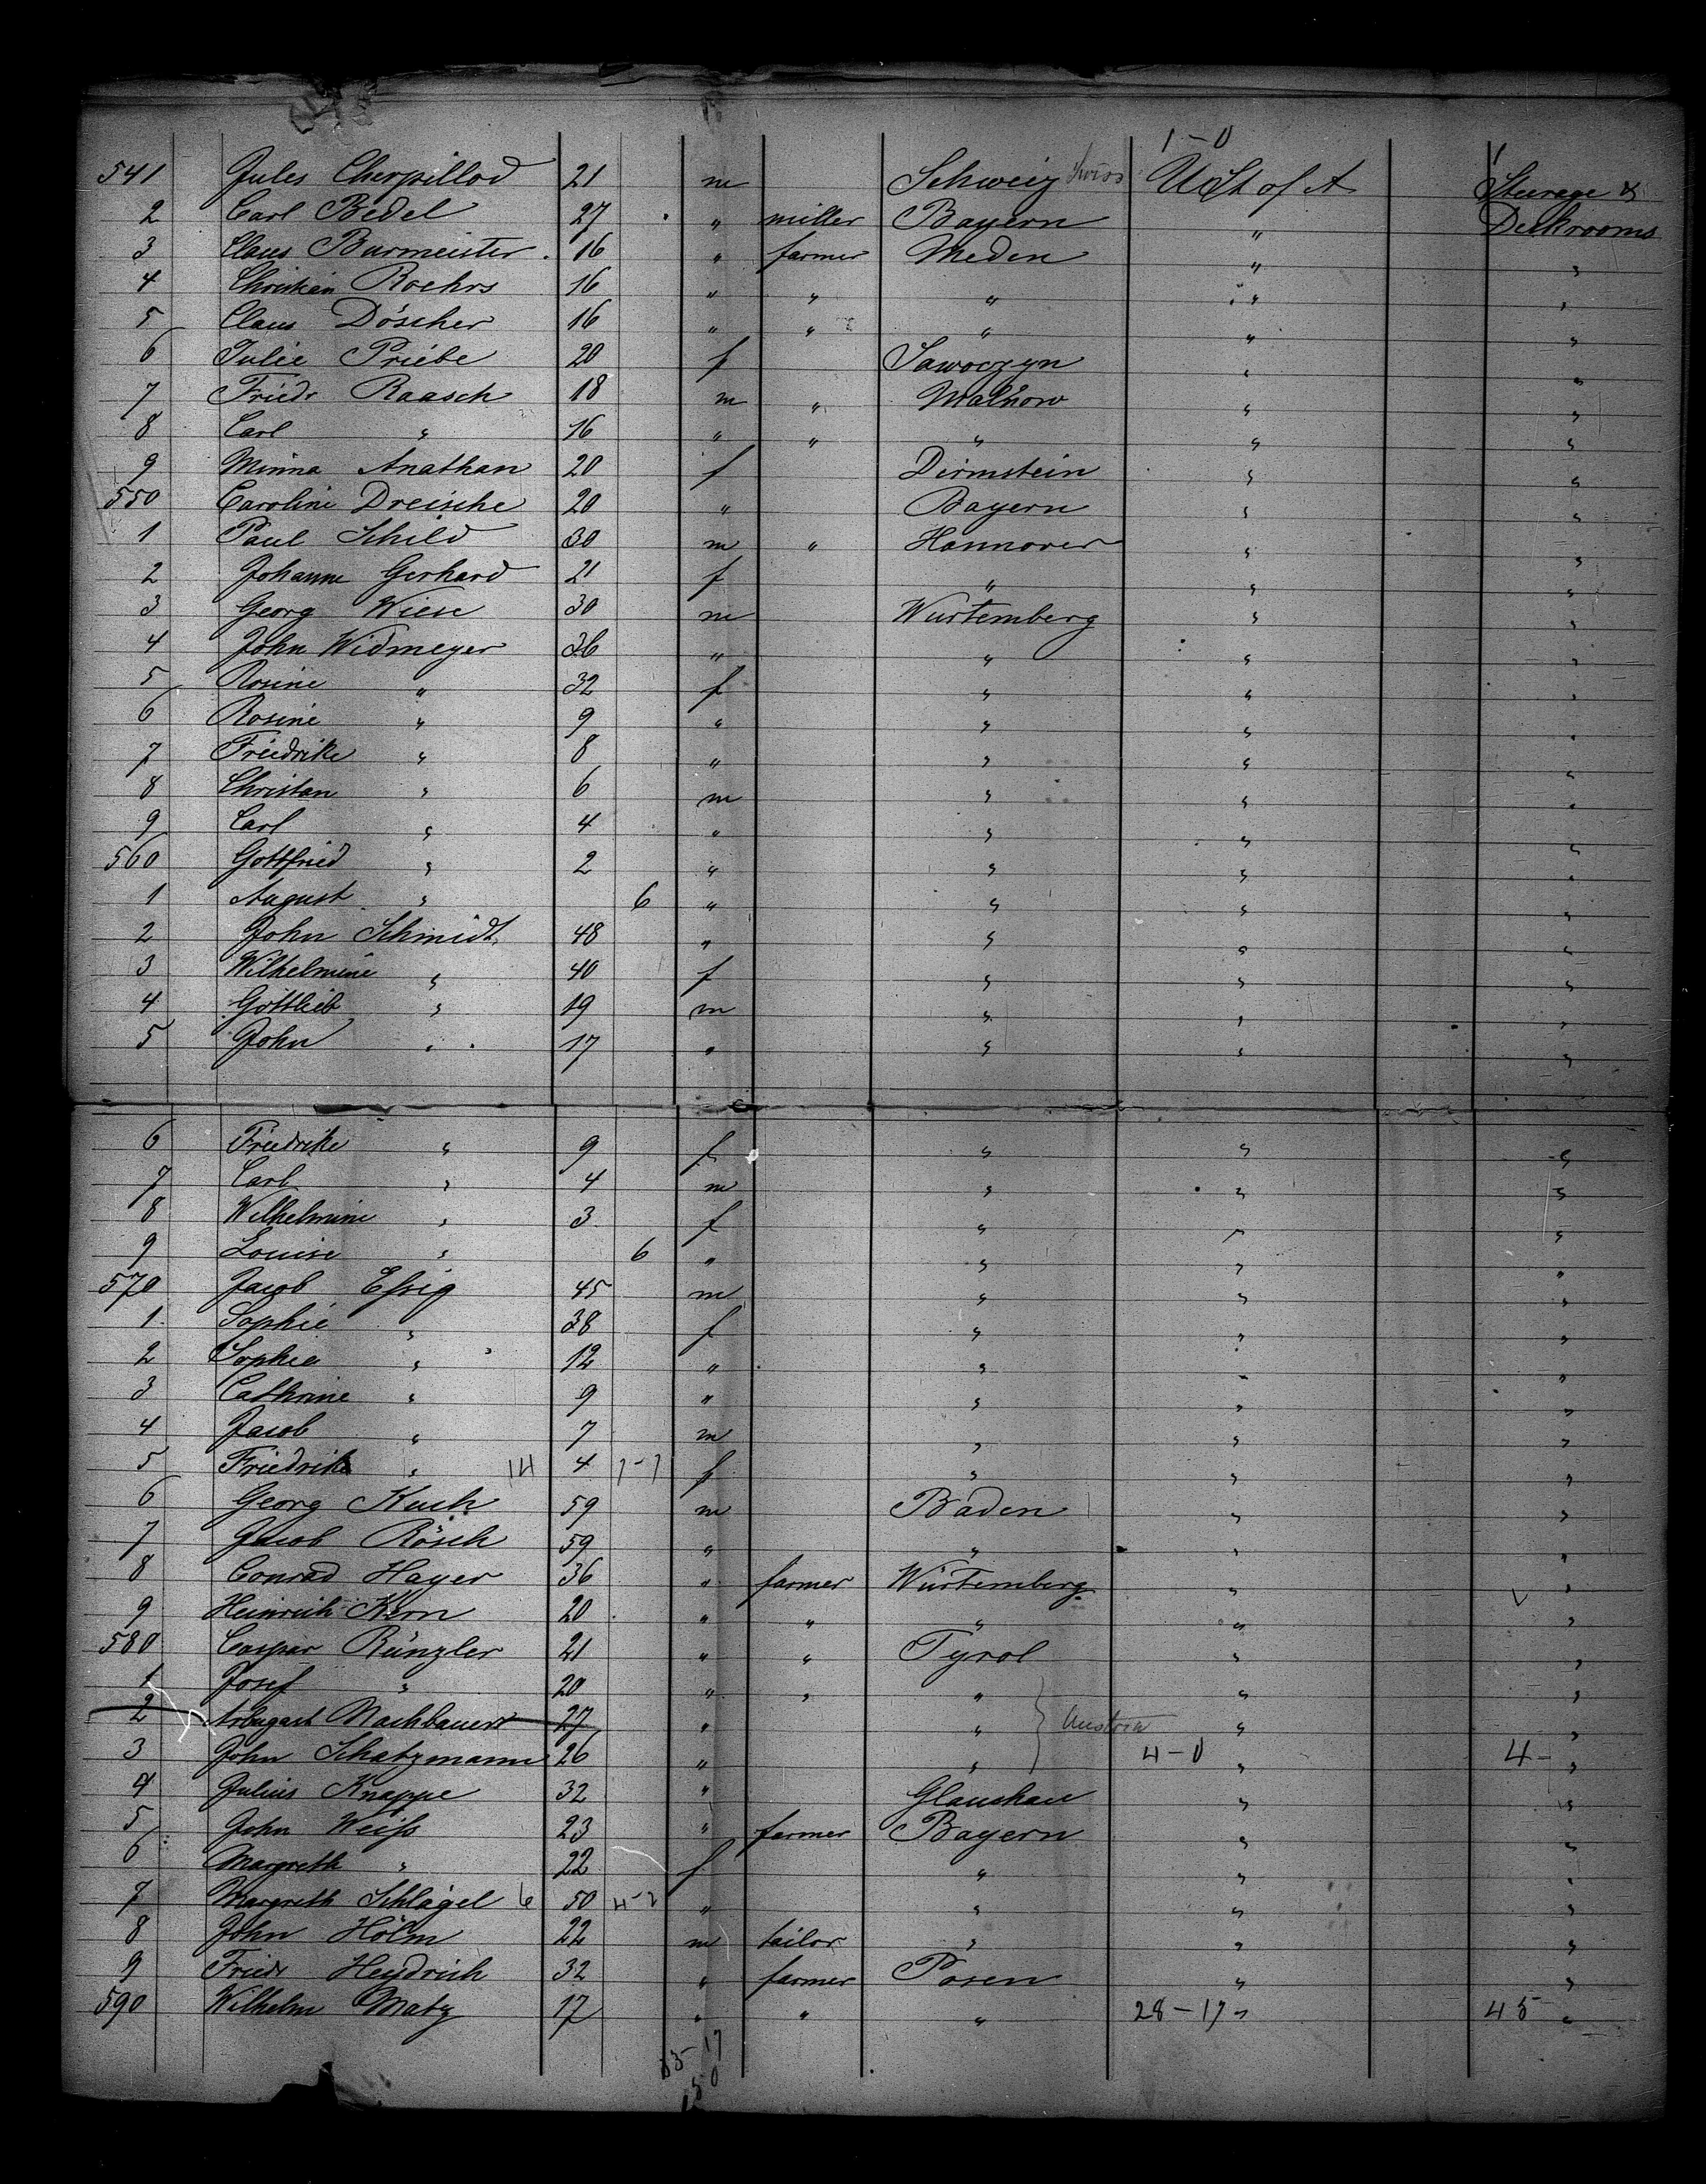 1-0 1
541 Jules Cherpillod 21 m Schweiz Swiss U St of A Steerage &
2 Carl Bedel 27 " miller Bayern " Deckrooms
3 Claus Burmeister 16 " farmer Meden " "
4 Christian Roehrs 16 " " " " "
5 Claus Döscher 16 " " " " "
6 Julie Priebe 20 f Sawoczyn " "
7 Friedr Raasch 18 m " Malnow " "
8 Carl " 16 " " " " "
9 Minna Anathan 20 f Dirmstein " "
550 Caroline Dreische 20 " Bayern " "
1 Paul Schild 30 m " Hannover " "
2 Johanne Gerhard 21 f " " "
3 Georg Wiese 30 m Wurtemberg " "
4 John Widmeyer 36 " " " "
5 Rosine " 32 f " " "
6 Rosine " 9 " " " "
7 Friedrike " 8 " " " "
8 Christan " 6 m " " "
9 Carl " 4 " " " "
560 Gottfried " 2 " " " "
1 August " 6 " " " "
2 John Schmidt 48 " " " "
3 Wilhelmine " 40 f " " "
4 Gottlieb " 19 m " " "
5 John " 17 " " " "
6 Friedrike " 9 f " " "
7 Carl " 4 m " " "
8 Wilhelmine " 3 f " " "
9 Louise " 6 " " " "
570 Jacob Eßig 45 m " " "
1 Sophie " 38 f " " "
2 Sophie " 12 " " " "
3 Cathrine " 9 " " " "
4 Jacob " 7 m " " "
5 Friedrike " 14 4 7-7 f " " "
6 Georg Kuch 59 m Baden " "
7 Jacob Rösch 59 " " " "
8 Conrad Hayer 36 " farmer Würtemberg " "
9 Heinrich Kern 20 " " " " "
580 Caspar Künzler 21 " " Tyrol " "
1 Josef " 20 " " " " "
2 Arbogast Nachbauer 27 " " Austria " "
3 John Schatzmann 26 " " 4-0 " 4- "
4 Julius Knappe 32 " Glauchau " "
5 John Weiß 23 " farmer Bayern " "
6 Margreth " 22 f " " "
7 Margreth Schlagel 6 50 4-2 " " " "
8 John Hölm 22 m tailor " " "
9 Friedr Heydrich 32 " farmer Posen " "
590 Wilhelm Maty 17 " " " 28-17 " 45 "
33-17
50